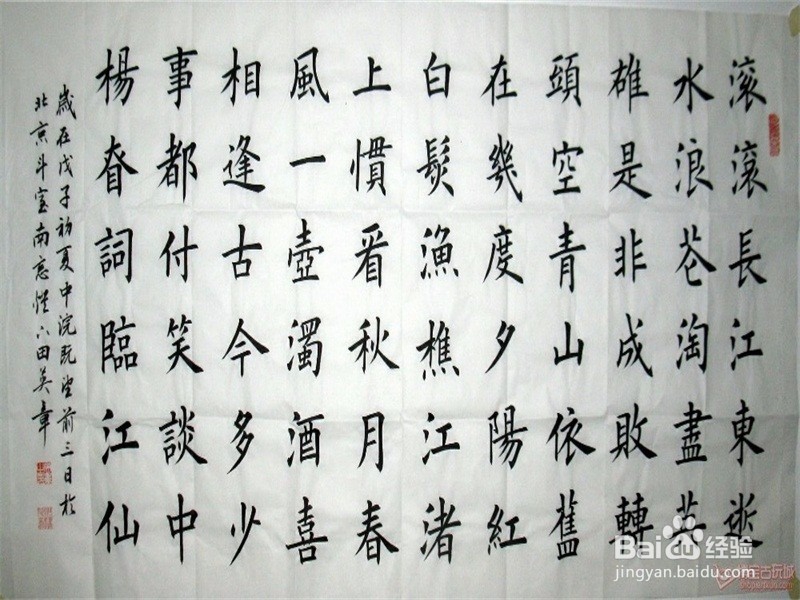 滾滾長江東逝
水浪花淘盡英
雄是非成敗轉
頭空青山依舊
在幾度夕陽紅
白髮漁樵江渚
上慣看秋月春
風一壺濁酒喜
相逢古今多少
事都付笑談中
楊昚詞臨江仙
歲在戊子初夏中浣既望前三日於
北京斗室南窓田英章
Baidu经验
jingyan.baidu.com
古玩城